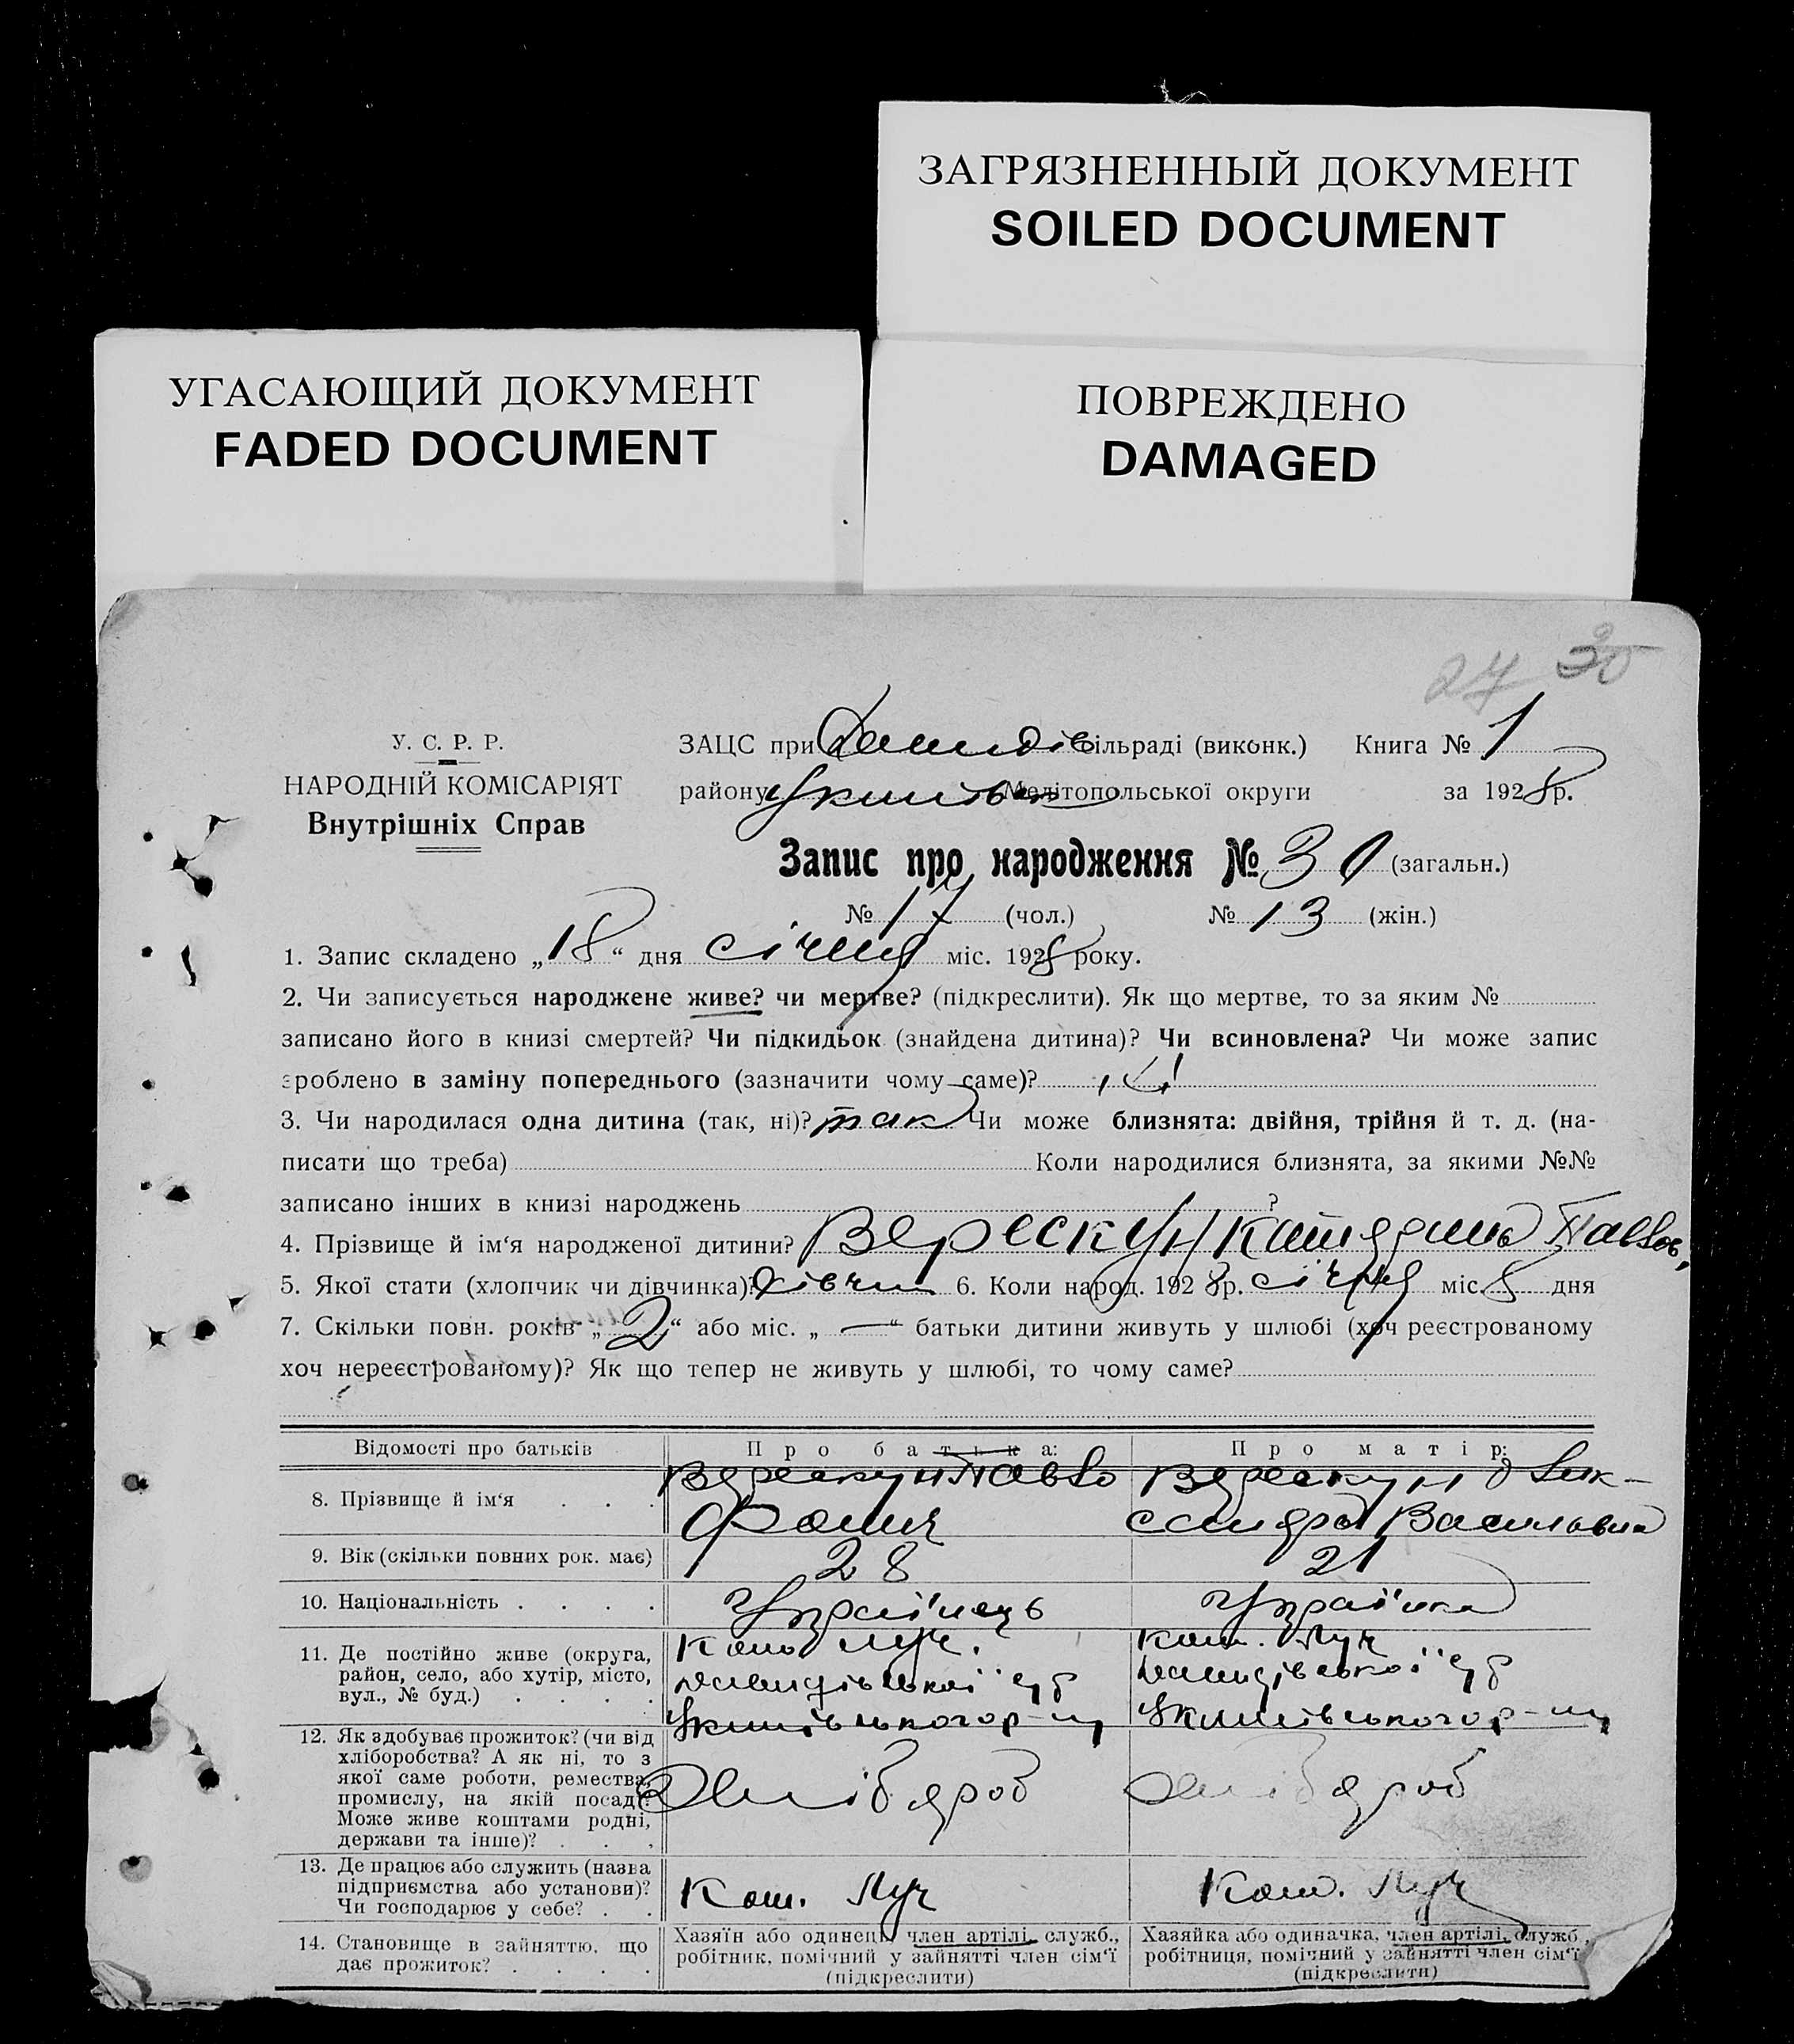 ЗАГРЯЗНЕННЫЙ ДОКУМЕНТ
SOILED DOCUMENT
УГАСАЮЩИЙ ДОКУМЕНТ
FADED DOCUMENT
ПОВРЕЖДЕНО
DAMAGED
27 30
У. С. Р. Р.
НАРОДНІЙ КОМІСАРІЯТ
Внутрішніх Справ
ЗАЦС при сільраді (виконк.) Книга № 1
району Мелітопольської округи за 1928 р.
Запис про народження № 30 (загальн.)
№ 17 (чол.) № 13 (жін.)
1. Запис складено „18“ дня січня міс. 1928 року.
2. Чи записується народжене живе? чи мертве? (підкреслити). Як що мертве, то за яким №
записано його в книзі смертей? Чи підкидьок (знайдена дитина)? Чи всиновлена? Чи може запис
зроблено в заміну попереднього (зазначити чому саме)?
3. Чи народилася одна дитина (так, ні)? так Чи може близнята: двійня, трійня й т. д. (на-
писати що треба) Коли народилися близнята, за якими №№
записано інших в книзі народжень ?
4. Прізвище й ім‘я народженої дитини? Верескун Катерина Павлов,
5. Якої стати (хлопчик чи дівчинка)? дівчин 6. Коли народ. 1928 р. січня міс. 8 дня
7. Скільки повн. років „2“ або міс. „—“ батьки дитини живуть у шлюбі (хоч реєстрованому
хоч нереєстрованому)? Як що тепер не живуть у шлюбі, то чому саме?
Відомості про батьків Про батька: Про матір:
8. Прізвище й ім‘я . . .
Верескун Павло
Фомич
Верескун Олек-
сандра Василовна
9. Вік (скільки повних рок. має) 28 21
10. Національність . . . . Українець Українка
11. Де постійно живе (округа,
район, село, або хутір, місто,
вул., № буд.) . . . .
Ком. Луч.
Ком. Луч
12. Як здобуває прожиток? (чи від
хліборобства? А як ні, то з
якої саме роботи, ремества,
промислу, на якій посаді?
Може живе коштами родні,
держави та інше)? . . .
Хлібороб Хлібороб
13. Де працює або служить (назва
підприємства або установи)?
Чи господарює у себе? . .
Ком. Луч Ком. Луч
14. Становище в зайняттю, що
дає прожиток? . . . .
Хазяїн або одинець, член артілі, служб.,
робітник, помічний у зайнятті член сім‘ї
(підкреслити)
Хазяйка або одиначка, член артілі, служб.,
робітниця, помічний у зайнятті член сім‘ї
(підкреслити)